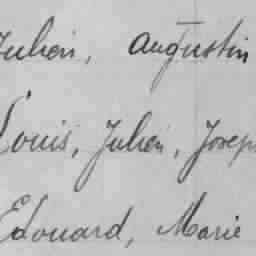 Julien, Augustin
Louis, Julien, Joseph
Edouard, Marie